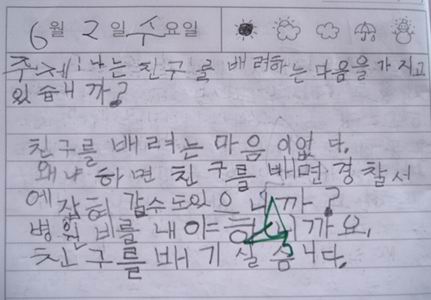 6월 2일 수요일
주제: 나는 친구를 배려하는 마음을 가지고
있습니까?
친구를 배려는 마음이 없다.
왜냐하면 친구를 배면 경찰서
에 잡혀 갈수도 있으니까?
병원비를 내야 하니까요.
친구를 배기 실습니다.